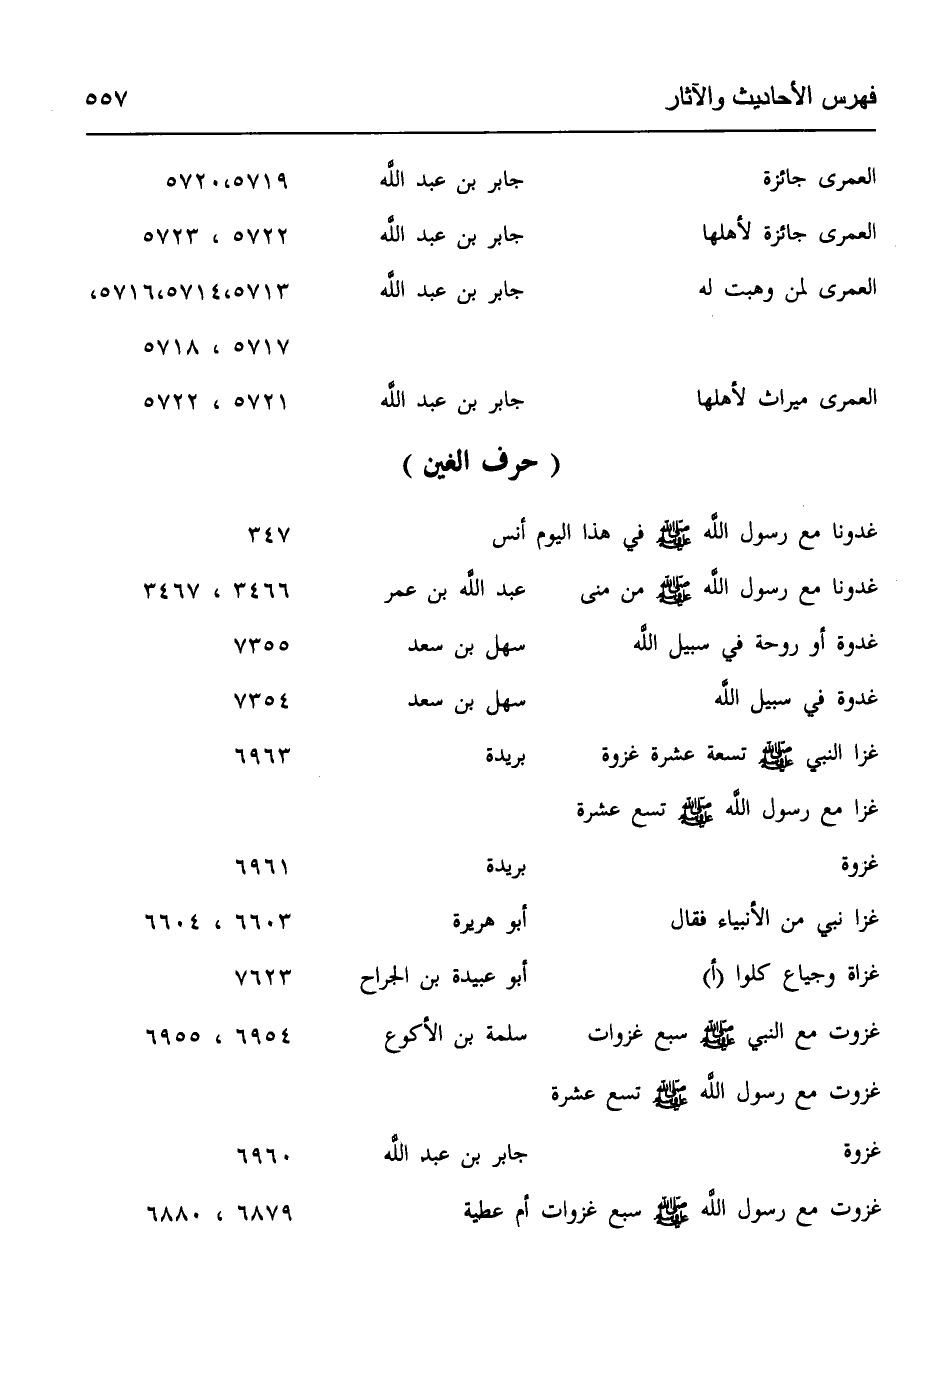 فهرس الأحاديث والآثار ٥٥٧
العمرى جائزة جابر بن عبد اللَّه ٥٧١٩،٥٧٢٠
العمرى جائزة لأهلها جابر بن عبد اللَّه ٥٧٢٢ ، ٥٧٢٣
العمرى لمن وهبت له جابر بن عبد اللَّه ٥٧١٣،٥٧١٤،٥٧١٦،
٥٧١٧ ، ٥٧١٨
العمرى ميراث لأهلها جابر بن عبد اللَّه ٥٧٢١ ، ٥٧٢٢
( حرف الغين )
غدونا مع رسول اللَّه ﷺ في هذا اليوم أنس ٣٤٧
غدونا مع رسول اللَّه ﷺ من منى عبد اللَّه بن عمر ٣٤٦٦ ، ٣٤٦٧
غدوة أو روحة في سبيل اللَّه سهل بن سعد ٧٣٥٥
غدوة في سبيل اللَّه سهل بن سعد ٧٣٥٤
غزا النبي ﷺ تسعة عشرة غزوة بريدة ٦٩٦٣
غزا مع رسول اللَّه ﷺ تسع عشرة
غزوة بريدة ٦٩٦١
غزا نبي من الأنبياء فقال أبو هريرة ٦٦٠٣ ، ٦٦٠٤
غزاة وجياع كلوا (أ) أبو عبيدة بن الجراح ٧٦٢٣
غزوت مع النبي ﷺ سبع غزوات سلمة بن الأكوع ٦٩٥٤ ، ٦٩٥٥
غزوت مع رسول اللَّه ﷺ تسع عشرة
غزوة جابر بن عبد اللَّه ٦٩٦٠
غزوت مع رسول اللَّه ﷺ سبع غزوات أم عطية ٦٨٧٩ ، ٦٨٨٠